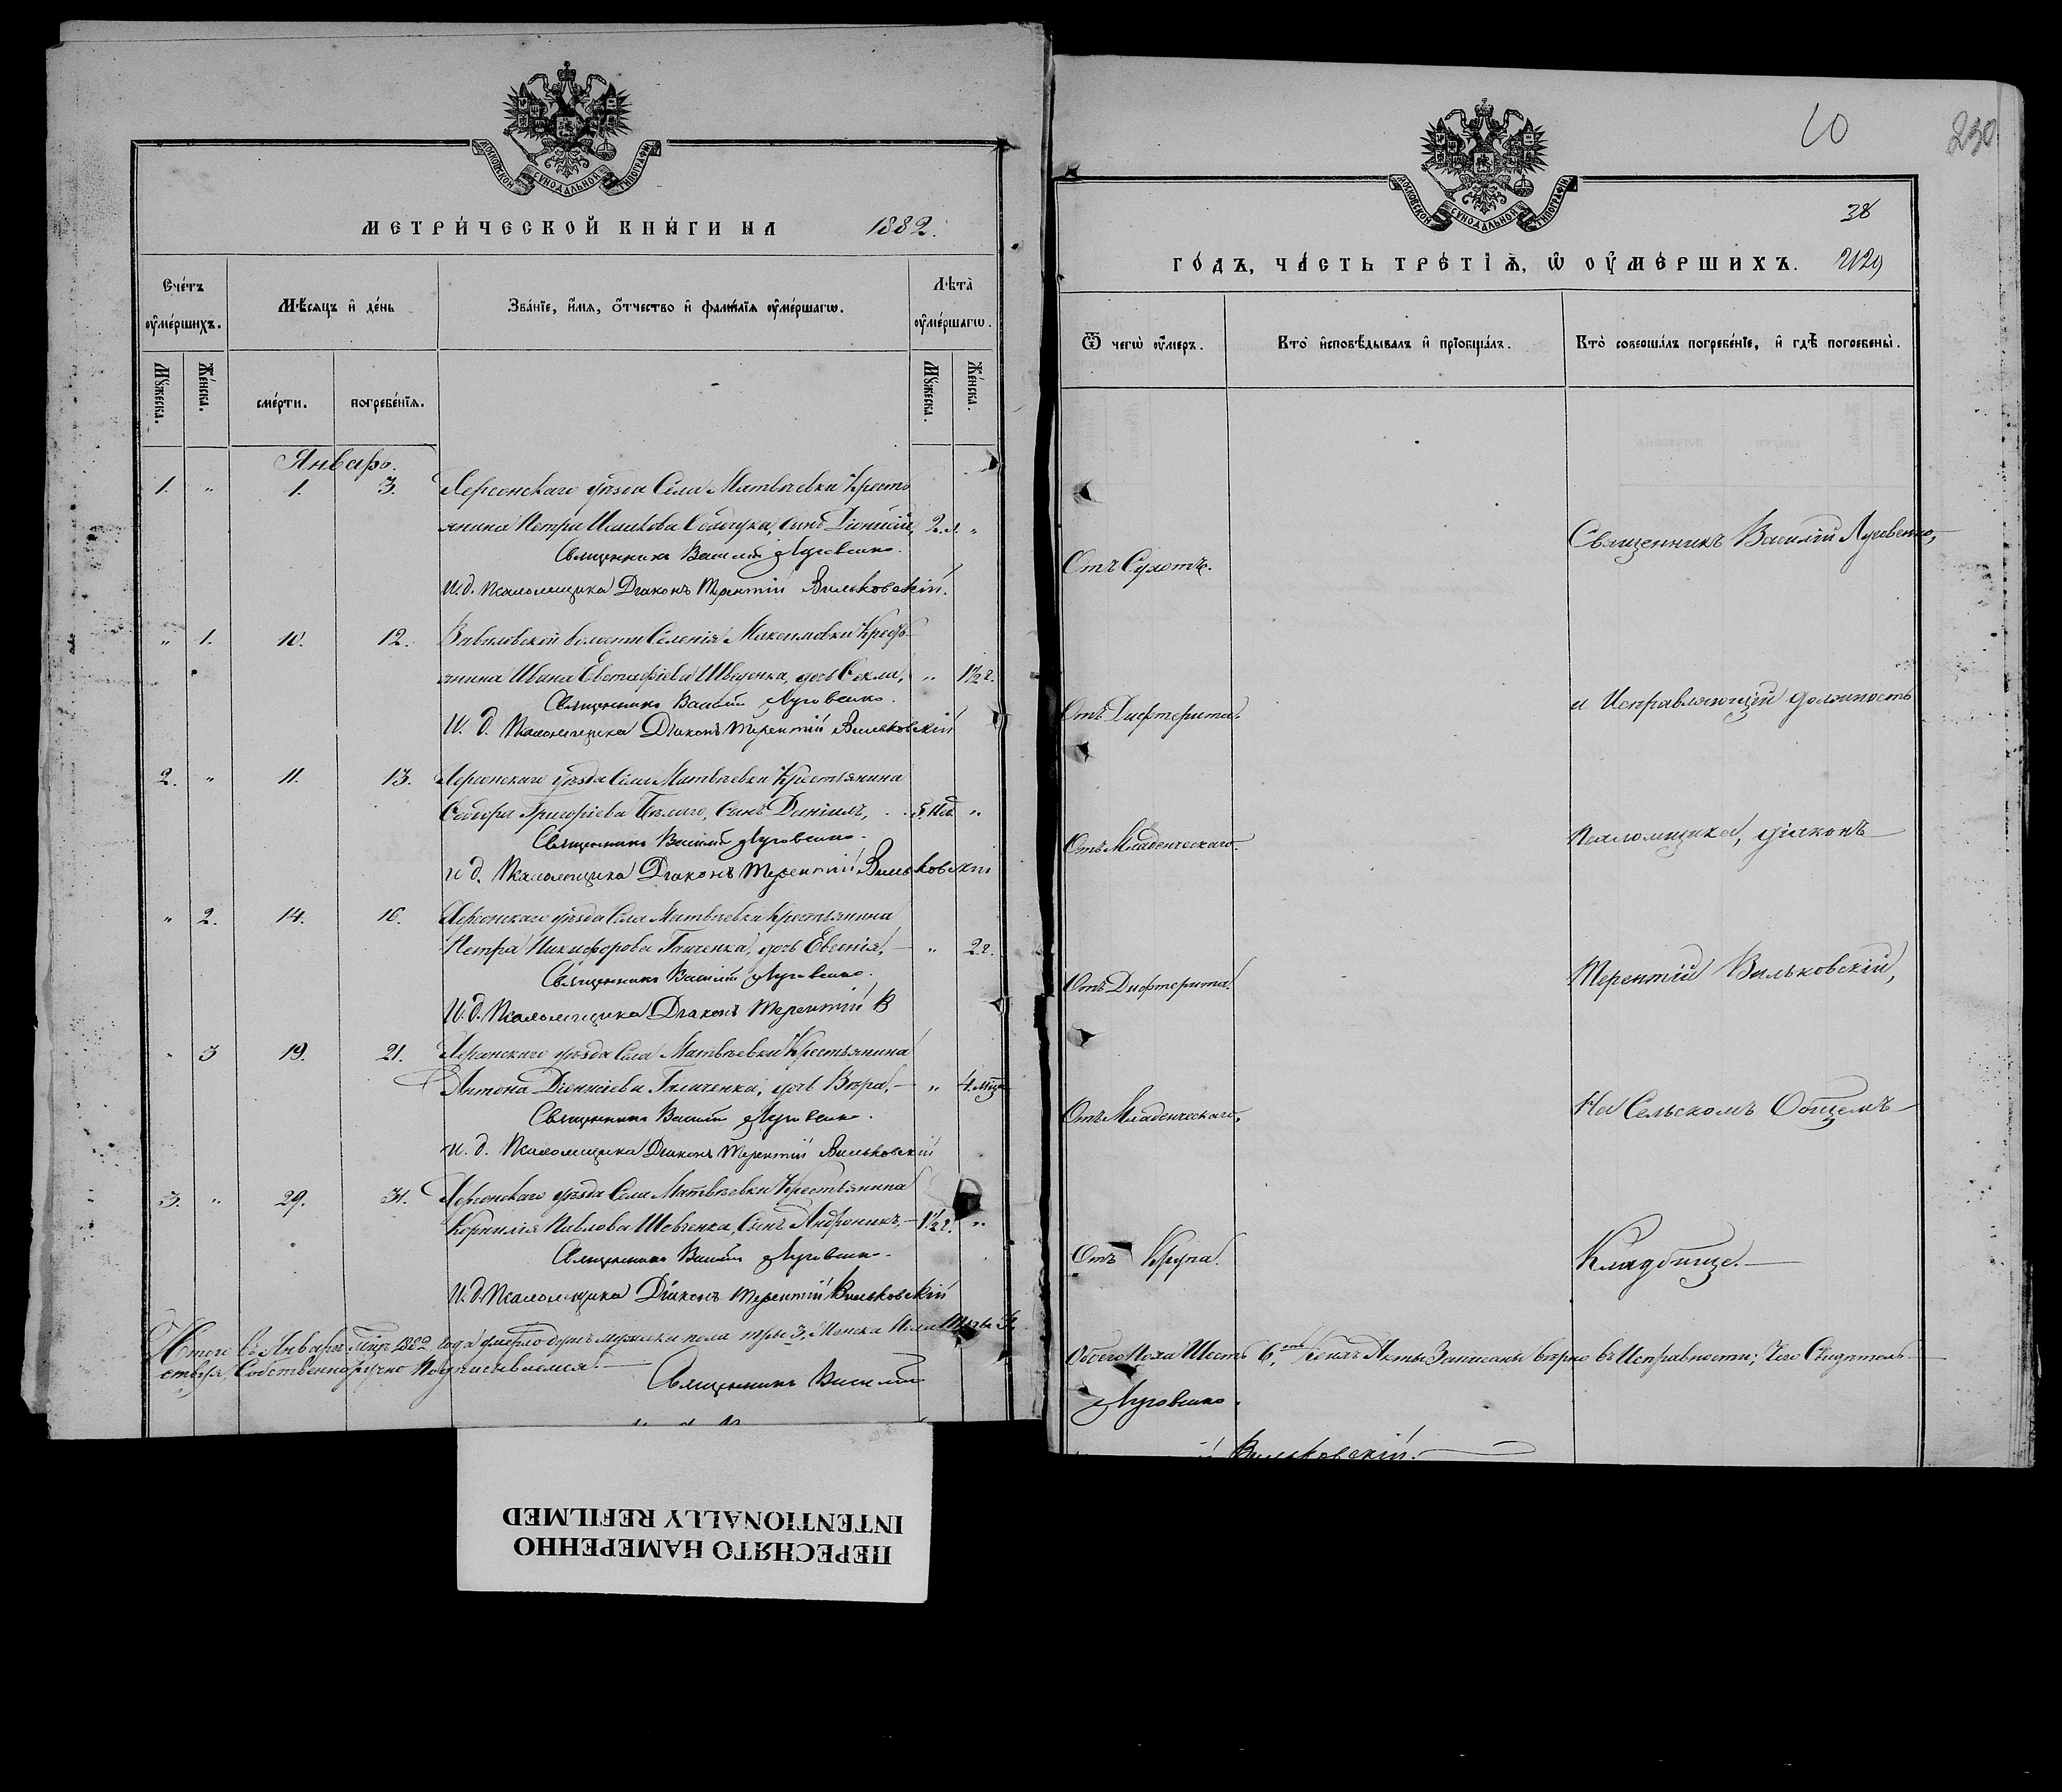 МОСКОВСКОЙ СѴНОДАЛЬНОЙ ТИПОГРАФІИ
МЕТРИ́ЧЕСКОЙ КНИ́ГИ НА 1882.
Сче́тъ ᲂу҆ме́ршихъ.
Мѣ́сяцъ и҆ де́нь
Зва́нїе, и҆́мя, ѻ҆́тчество и҆ фами́лїѧ ᲂу҆ме́ршагѡ.
Лѣ́та ᲂу҆ме́ршагѡ.
Мꙋ́жеска.
Же́нска.
сме́рти.
погребе́нїѧ.
Мꙋ́жеска.
Же́нска.
Январь.
1. " 1. 3. Херсонскаго уѣзда Села Матвѣевки Кресть
янина Петра Исакова сынъ Діонисій, 2. л. "
Священникъ Василій Луговенко.
И. д. Псаломщика Діаконъ Терентій Вильковскій.
" 1. 10. 12. Вавиловской волости Селенія Максимовки Кресть
янина Ивана Евстафіева Шведенка, дочь Фекла, " 1½ г.
Священникъ Василій Луговенко.
И. д. Псаломщика Діаконъ Терентій Вильковскій
2. " 11. 13. Херсонскаго уѣзда Села Матвѣевки Крестьянина
Федора Григоріева Бѣлаго, сынъ Даніилъ, 5. Нед. "
Священникъ Василій Луговенко.
И. д. Псаломщика Діаконъ Терентій Вильковскій
" 2. 14. 16. Херсонскаго уѣзда Села Матвѣевки Крестьянина
Петра Никифорова дочь Евгенія, " 2 г.
Священникъ Василій Луговенко.
И. д. Псаломщика Діаконъ Терентій В
" 3 19. 21. Херсонскаго уѣзда Села Матвѣевки Крестьянина
Антона Діонисіева Галиченка, дочь Вѣра, " 4. Мѣц
Священникъ Василій Луговенко.
И. д. Псаломщика Діаконъ Терентій Вильковскій
3. " 29. 31. Херсонскаго уѣзда Села Матвѣевки Крестьянина
Корнилія Павлова Шевченка, Сынъ Андроникъ, 1½ г. "
Священникъ Василій Луговенко.
И. д. Псаломщика Діаконъ Терентій Вильковскій
Итого въ Январѣ Мѣцѣ 1882 года умерло душъ мужска пола три 3, Женска Пола три 3.
ствуя, Собственноручно Подписываемся.
Священникъ Василій
10
230
МОСКОВСКОЙ СѴНОДАЛЬНОЙ ТИПОГРАФІИ
38
ГО́ДЪ, ЧА́СТЬ ТРЕ́ТІѦ, Ѡ҆ ОУ҆МЕ́РШИХЪ. 2129
Ѿ чегѡ̀ ᲂу҆́меръ.
Кто̀ и҆сповѣ́дывалъ и҆ прїобща́лъ.
Кто̀ соверша́лъ погребе́нїе, и҆ гдѣ̀ погребены̀.
Отъ Сухотъ.
Священникъ Василій Луговенко,
Отъ Дифтерита.
и Исправляющій должность
Отъ Младенческаго.
Псаломщика, діаконъ
Отъ Дифтерита.
Терентій Вильковскій,
Отъ Младенческаго,
На Сельскомъ Общемъ
Отъ Крупа.
Кладбище.
Обоего Пола Шесть 6, Акты Записаны вѣрно въ Исправности; Чего Свидѣтель
Луговенко.
Вильковскій.
ПЕРЕСНЯТО НАМЕРЕННО
INTENTIONALLY REFILMED